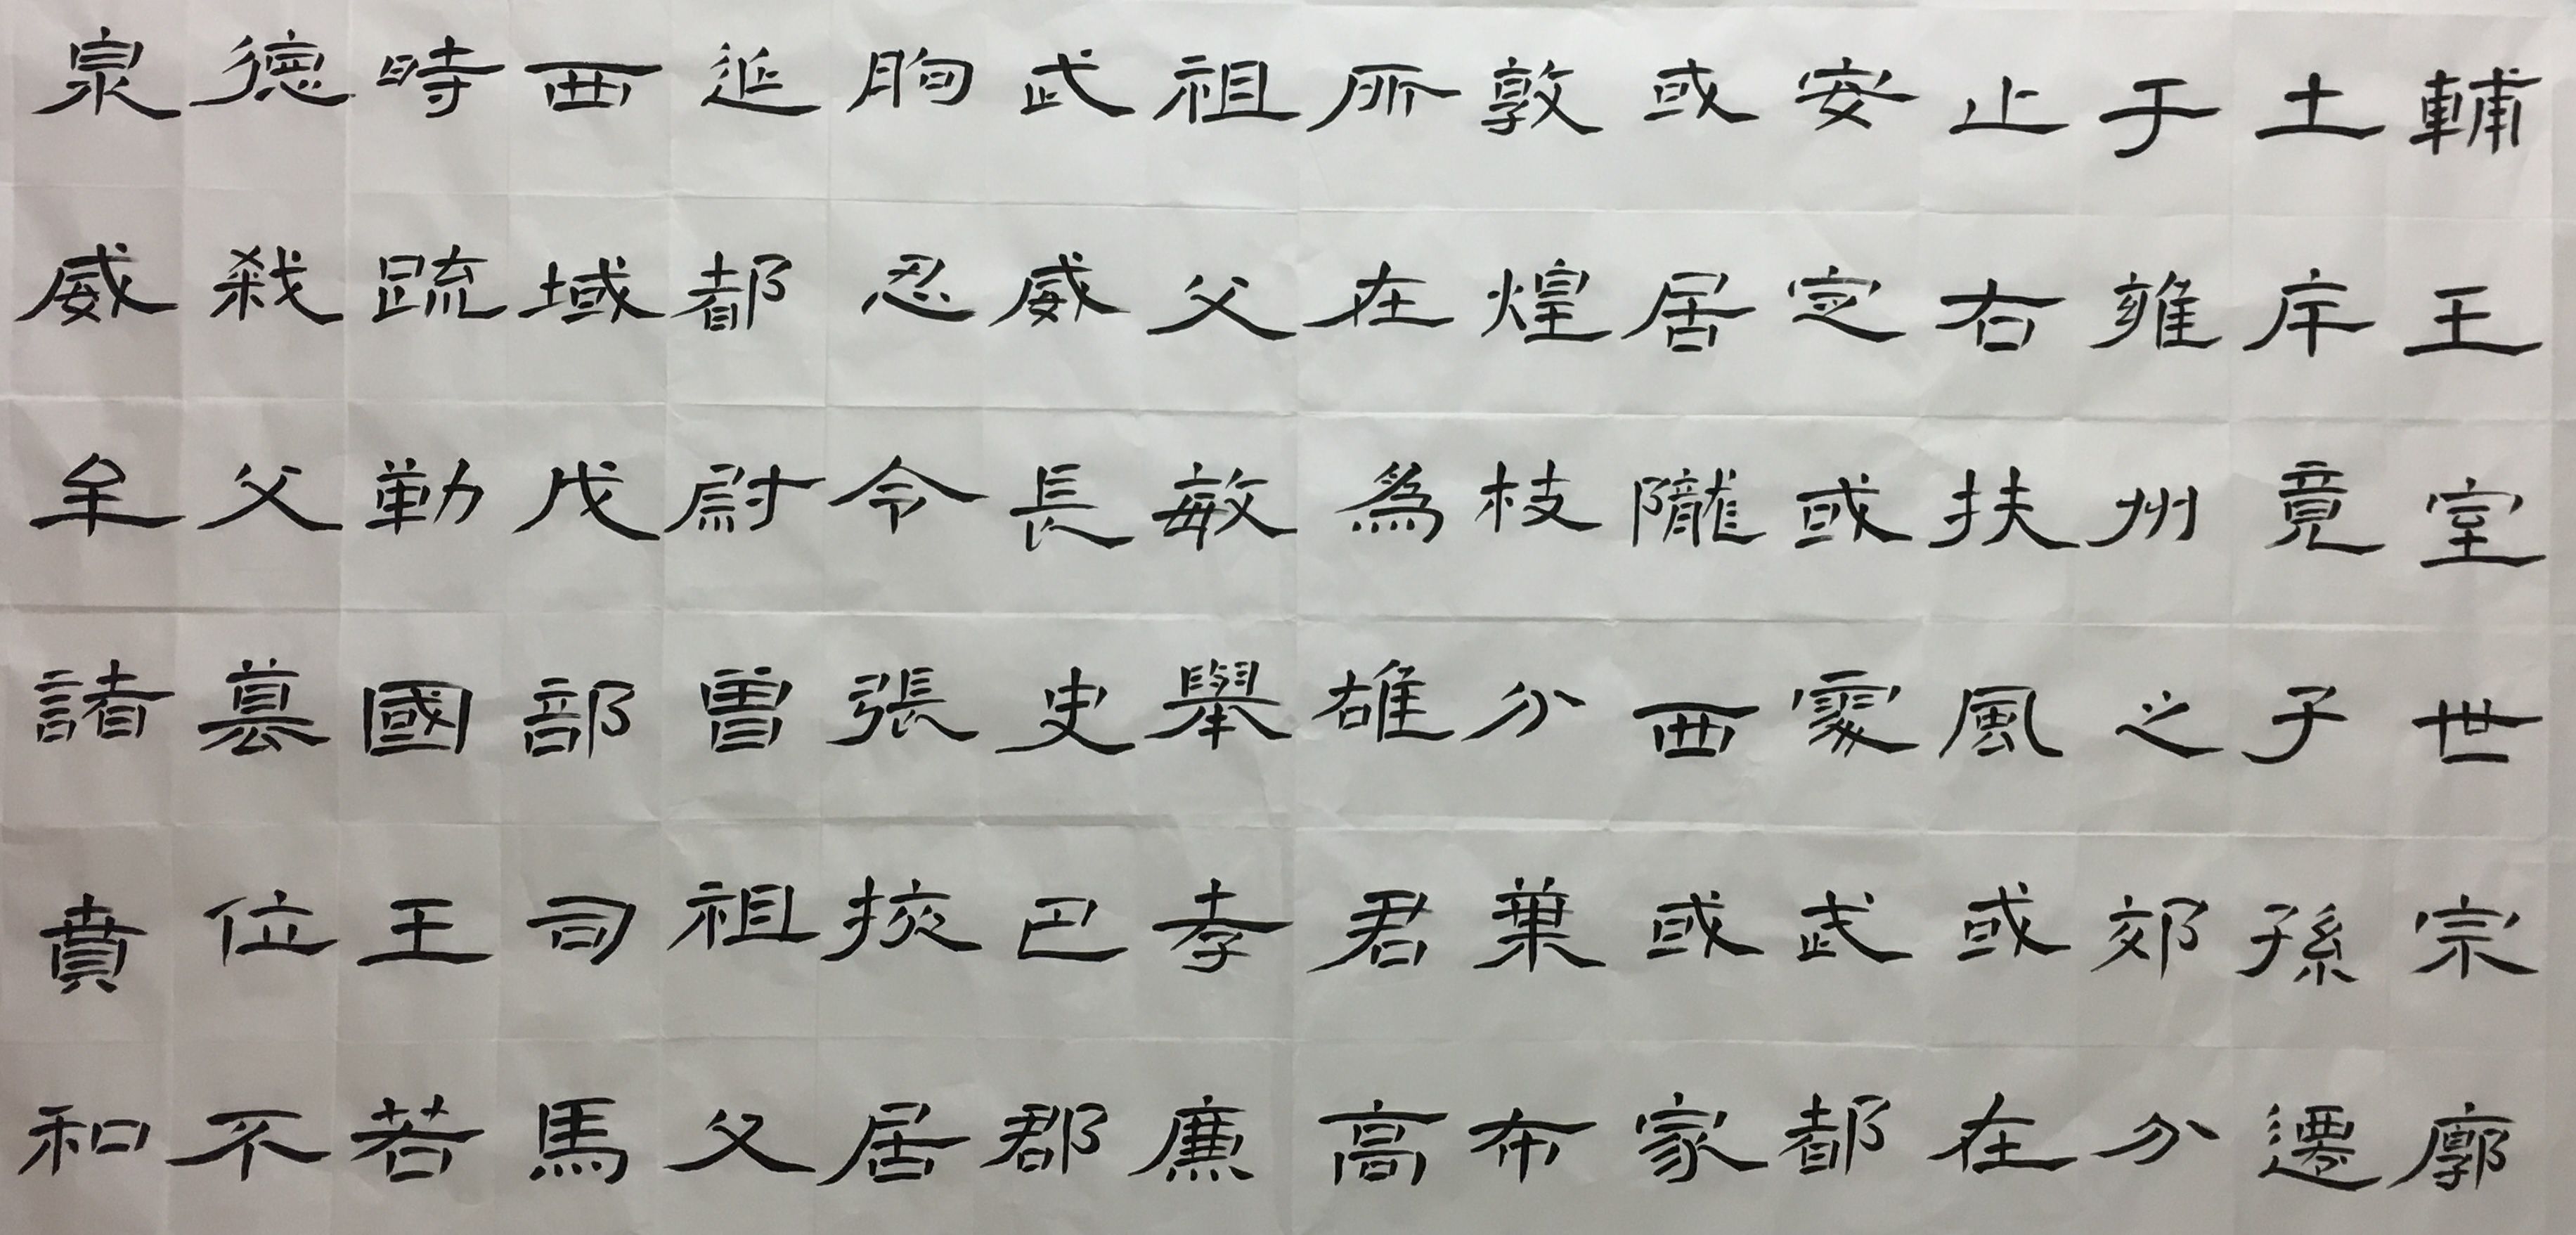 輔王室世宗廓
土斥竟子孫遷
于雍州之郊分
止右扶風或在
安定或處武都
或居隴西或家
敦煌枝分葉布
所在為雄君高
祖父敏舉孝廉
武威長史巴郡
朐忍令張掖居
延都尉曾祖父
西域戊部司馬
時疏勒國王若
德弒父篡位不
泉威牟諸賁和